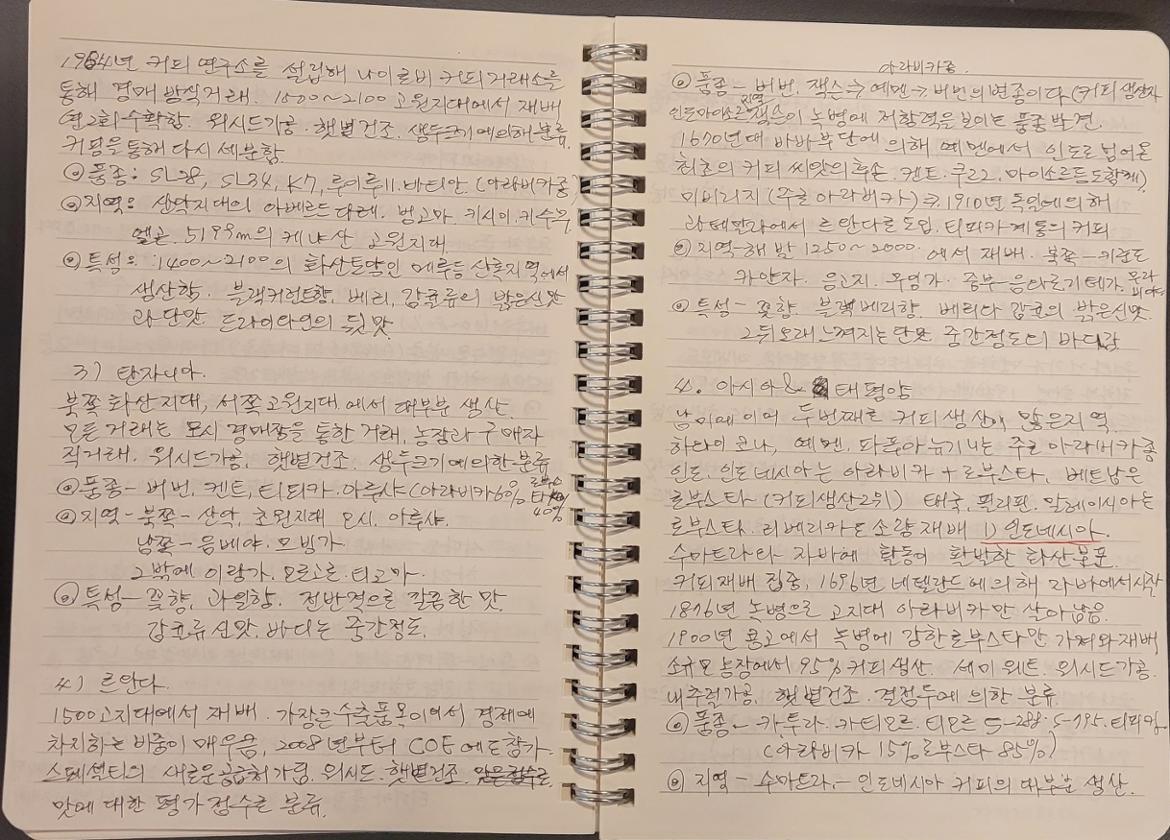 1964년 커피 연구소를 설립해 나이로비 커피거래소를
통해 경매 방식거래. 1500~2100 고원지대에서 재배
(연2회수확함. 워시드가공. 햇볕건조. 생두크기에의해분류.
커핑을통해 다시 세분함.
◎품종: SL28, SL34, K7, 루이루11. 바티안. (아라비카종)
◎지역: 산악지대의 아베르드 다레. 벙고마. 키시이. 키수무.
엘곤. 5199m의 케냐산 고원지대
◎특성: 1400~2100의 화산토양인 메루등 산록지역에서
생산함. 블랙커런트향, 베리, 감귤류의 밝은신맛
과 단맛. 드라이와인의 뒷맛.
3) 탄자니아.
북쪽 화산지대, 서쪽고원지대.에서 대부분 생산.
모든 거래는 모시 경매장을 통한 거래, 농장과 구매자
직거래. 워시드가공, 햇볕건조. 생두크기에의한분류
◎품종-버번. 켄트, 티피카. 아루샤(아라비카60% 로부스타 40%
◎지역-북쪽-산악, 초원지대 모시. 아루샤.
남쪽-음베야. 모빙가.
그밖에 이링가. 모로고로. 티고마.
◎특성-꽃향, 과일향. 전반적으로 깔끔한 맛.
감귤류신맛. 바디는 중간정도.
4) 르완다.
1500고지대에서 재배. 가장큰 수출품목이어서 경제에
차지하는 비중이 매우큼, 2008년부터 COE에도 참가.
스페셜티의 새로운공급처가됨. 워시드. 햇볕건조.
맛에 대한 평가 점수로 분류.
아라비카종.
◎품종- 버번. 잭슨→예멘→버번의변종이다(커피 생산자
인도마이소르지역 잭슨이 녹병에 저항력을 보이는 품종 발견.
1670년대 바바부단에 의해 예멘에서 인도로넘어온
최초의 커피 씨앗의후손. 켄트. 쿠르그. 마이소르등도함께)
미비리지(주로 아라비카)→1910년 독일에의해
과테말라에서 르완다로도입. 티피카계통의 커피
◎지역-해발 1250~2000.에서 재배. 북쪽-키온도
카얀자. 응고지. 무잉가. 중부-음타로기테가.
◎특성-꽃향. 블랙베리향. 베리와 감귤의 밝은신맛.
그뒤오래느껴지는단맛. 중간정도의 바디감
4. 아시아& 태평양
남미에 이어 두번째로 커피생산이 많은지역
하와이코나, 예멘. 파푸아뉴기니는 주로 아라비카종
인도. 인도네시아는 아라비카+로부스타. 베트남은
로부스타(커피생산2위) 태국, 필리핀. 말레이시아는
로부스타. 리베리카도 소량 재배 1) 인도네시아.
수마트라와 자바에 활동이 활발한 화산분포.
커피재배 집중, 1696년 네덜란드에의해 자바에서시작
1876년 녹병으로 고지대 아라비카만 살아남음.
1900년 콩고에서 녹병에 강한로부스타만 가져와재배
소규모 농장에서 95%커피생산. 세미워트. 워시드가공.
내추럴가공, 햇볕건조. 결점두에 의한 분류
◎품종- 카투라. 카티모르. 티모르 S-288. S-795. 티피카.
(아라비카 15% 로부스타 85%)
◎지역- 수마트라- 인도네시아 커피의 대부분 생산.